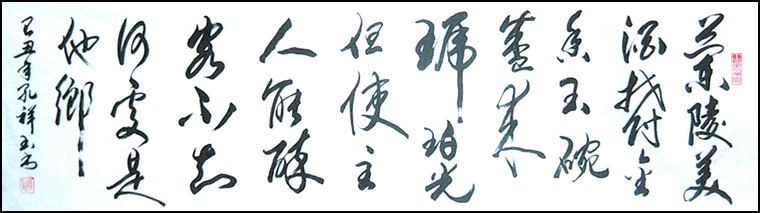 蘭陵美
酒鬱金
香玉碗
盛來
琥珀光
但使主
人能醉
客不知
何處是
他鄉
己丑年孔祥玉書